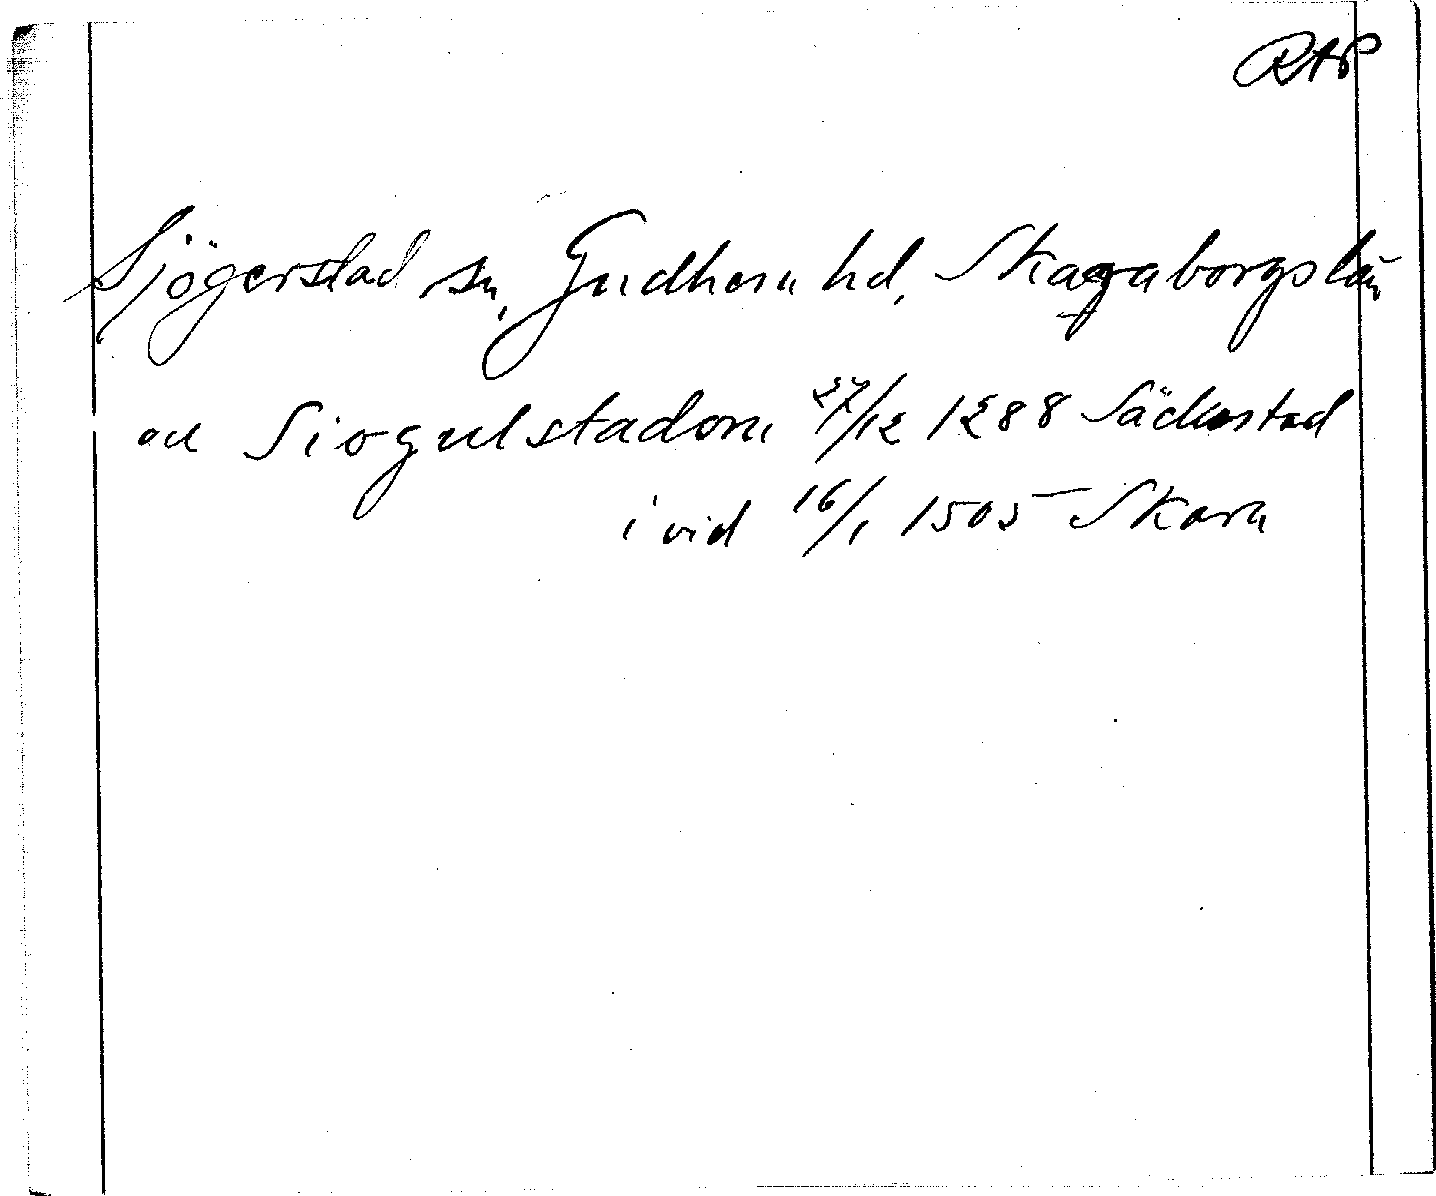 RAP
Sjögerstad sn, Gudhem hd, Skaraborgs län
ad Siogulstadom 27/12 1288 Säckestad
i vid 16/1 1505 Skara